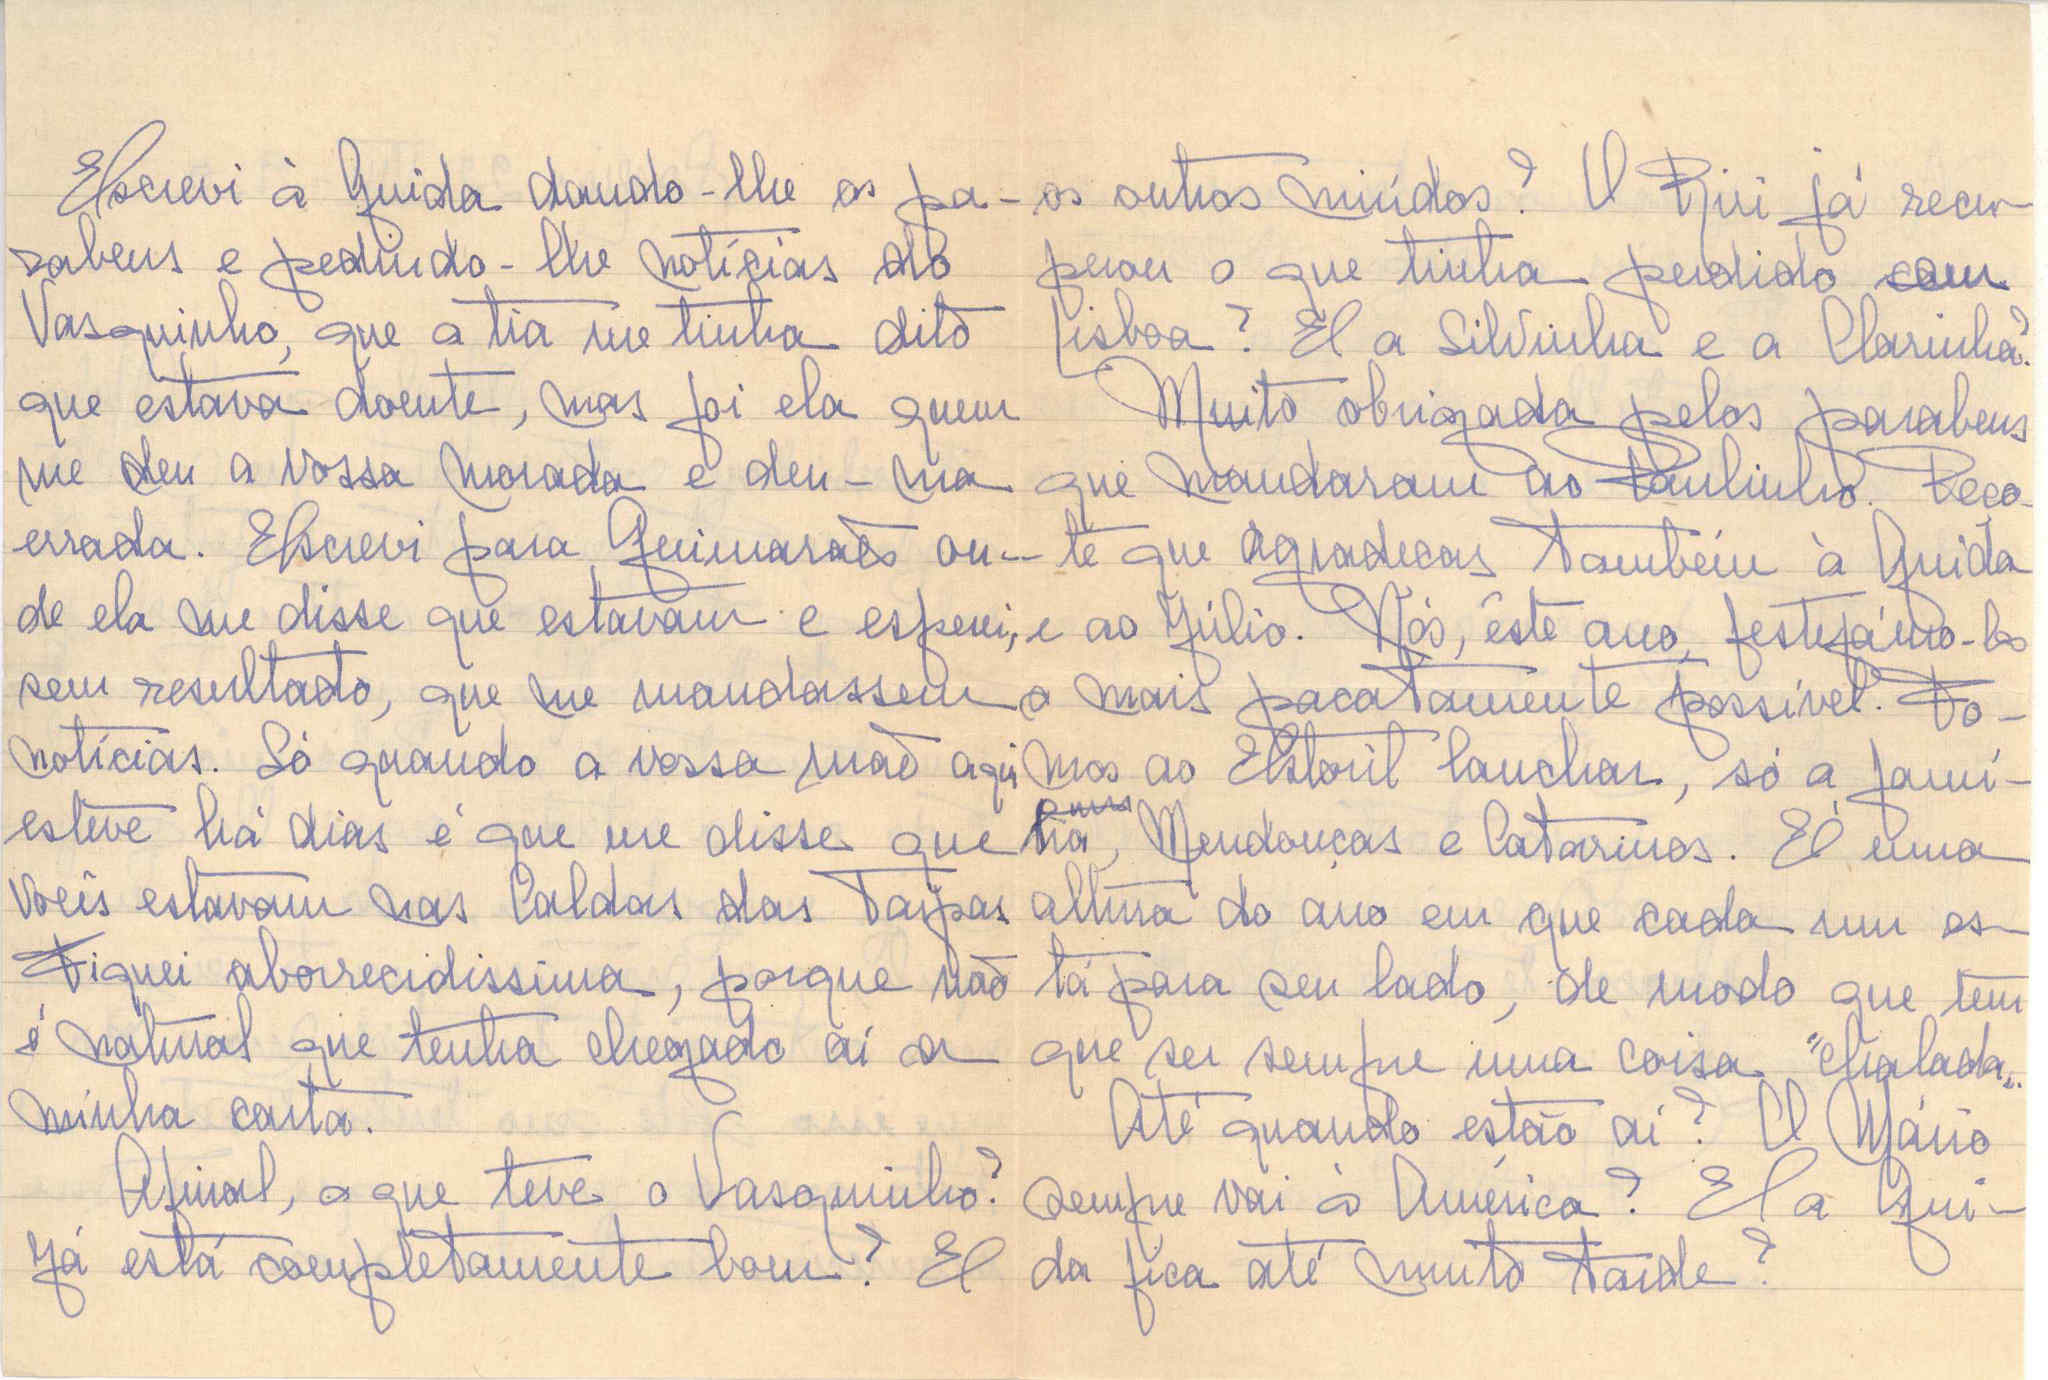 Escrevi à Guida dando-lhe os pa-
rabens e pedindo-lhe notícias do
Vasquinho, que a tia me tinha dito
que estava doente, mas foi ela quem
me deu a vossa morada e deu-ma
errada. Escrevi para Guimarães on-
de ela me disse que estavam e esperei,
sem resultado, que me mandassem
notícias. Só quando a vossa mãe aqui
esteve há dias é que me disse que
vocês estavam nas Caldas das Taipas
Fiquei aborrecidissima, porque não
é natural que tenha chegado aí a
minha carta.
Afinal, o que teve o Vasquinho?
Já está completamente bom? E
os outros miúdos? O Rui já recu-
perou o que tinha perdido em
Lisboa? E a Silvinha e a Clarinha?
Muito obrigada pelos parabens
que mandaram ao Paulinho. Peço-
te que agradeças também à Guida
e ao Júlio. Nós, êste ano, festejámo-los
o mais pacatamente possível. Fo-
mos ao Estoril lanchar, só a famí-
lia, Mendonças e Catarinos. É uma
altura do ano em que cada um es-
tá para seu lado, de modo que tem
que ser sempre uma coisa "chalada".
Até quando estão aí? O Mário
sempre vai à América? E a Gui-
da fica até muito tarde?